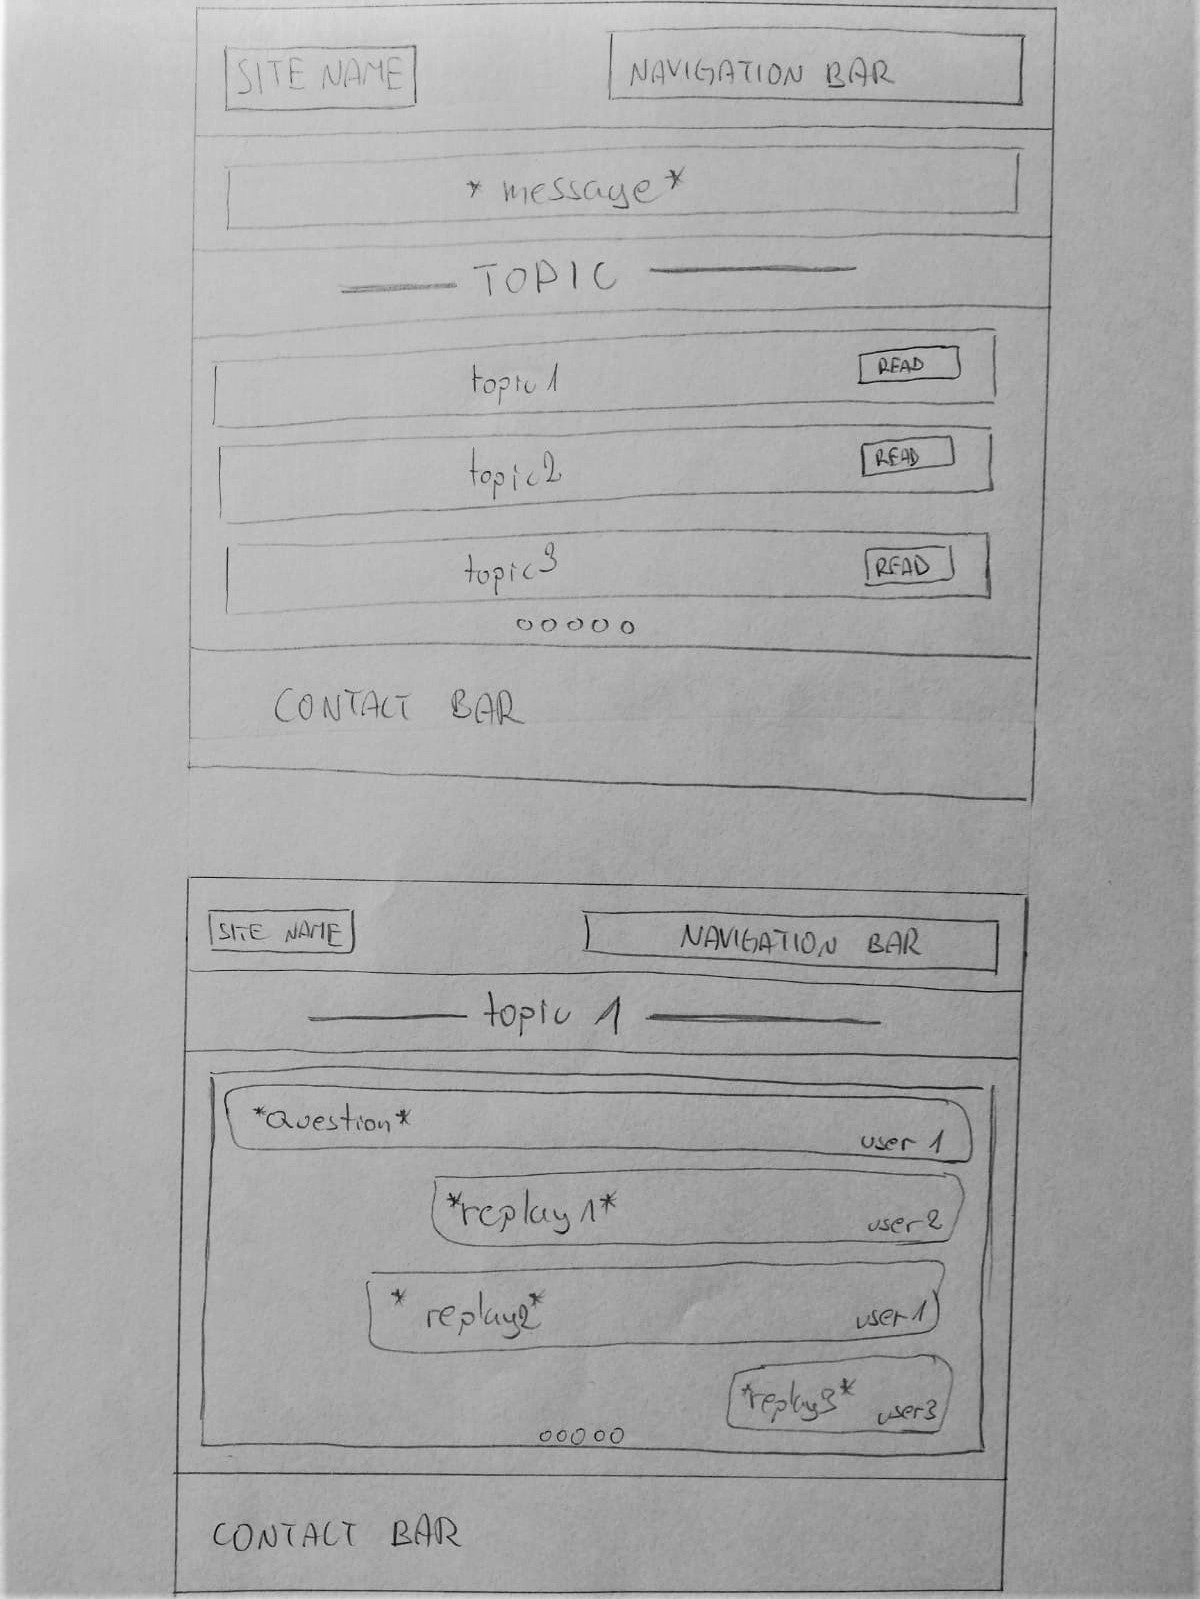 SITE NAME
NAVIGATION BAR
* message *
TOPIC
topic 1
READ
topic 2
READ
topic 3
READ
CONTACT BAR
SITE NAME
NAVIGATION BAR
topic 1
*Question*
user 1
*replay 1*
user 2
* replay2*
user 1
*replay3*
user3
CONTACT BAR